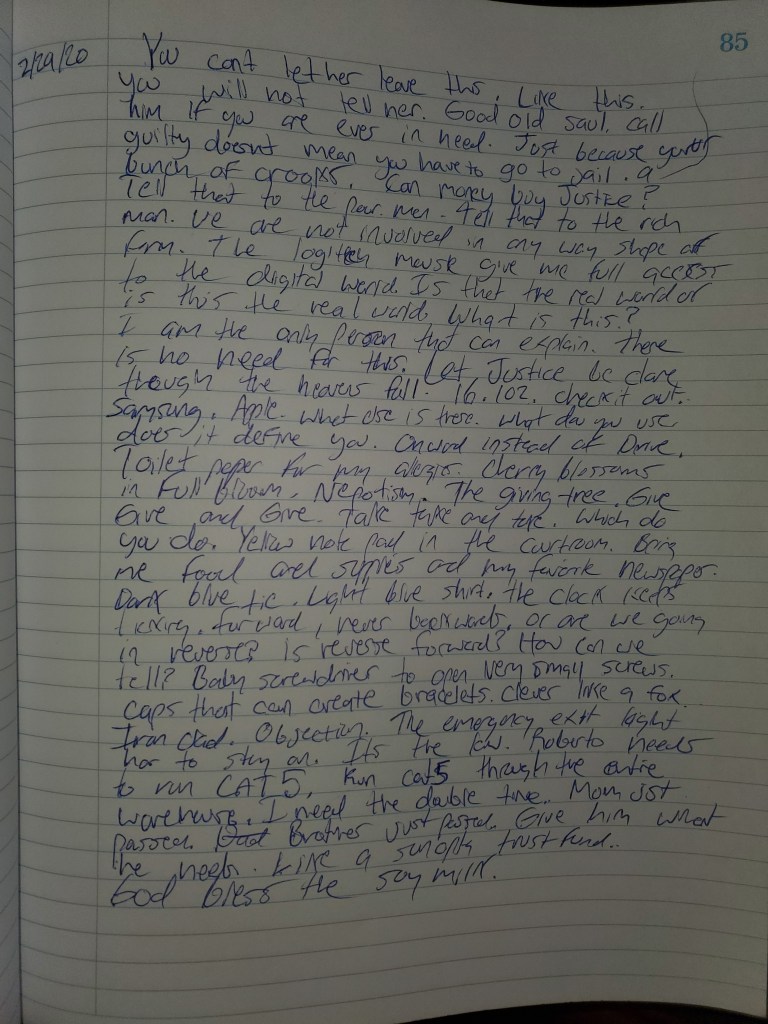 85
2/29/20 You cant let her leave this. Like this.
you will not tell her. Good old saul. call
him if you are ever in need. Just because your
guilty doesnt mean you have to go to jail. a
bunch of crooks. Can money buy Justice?
Tell that to the poor man. Tell that to the rich
man. We are not involved in any way shape of
form. The logitech mouse give me full access
to the digital world. Is that the real world or
is this the real world. What is this?
I am the only person that can explain. There
is no need for this. Let Justice be done
though the heavens fall. 16.102. check it out.
Samsung. Apple. what else is there. what do you use,
does it define you. Onward instead of Drive.
Toilet paper for my alergies. Cherry blossoms
in full bloom. Nepotism. The giving tree. Give
Give and Give. Take take and take. Which do
you do. Yellow note pad in the courtroom. Bring
me food and supplies and my favorite newspaper.
Dark blue tie. Light blue shirt. the clock keeps
ticking. forward, never backwards, or are we going
in reverse? is reverse forward? How can we
tell? Baby screwdriver to open very small screws.
caps that can create bracelets. clever like a fox.
Iron clad. Objection. The emergency exit light
has to stay on. Its the law. Roberto needs
to run CAT5. Run cat5 through the entire
warehouse. I need the double time. Mom just
passed. Dad Brother just passed. Give him what
he needs. Like a trust fund.
God bless the soy milk.